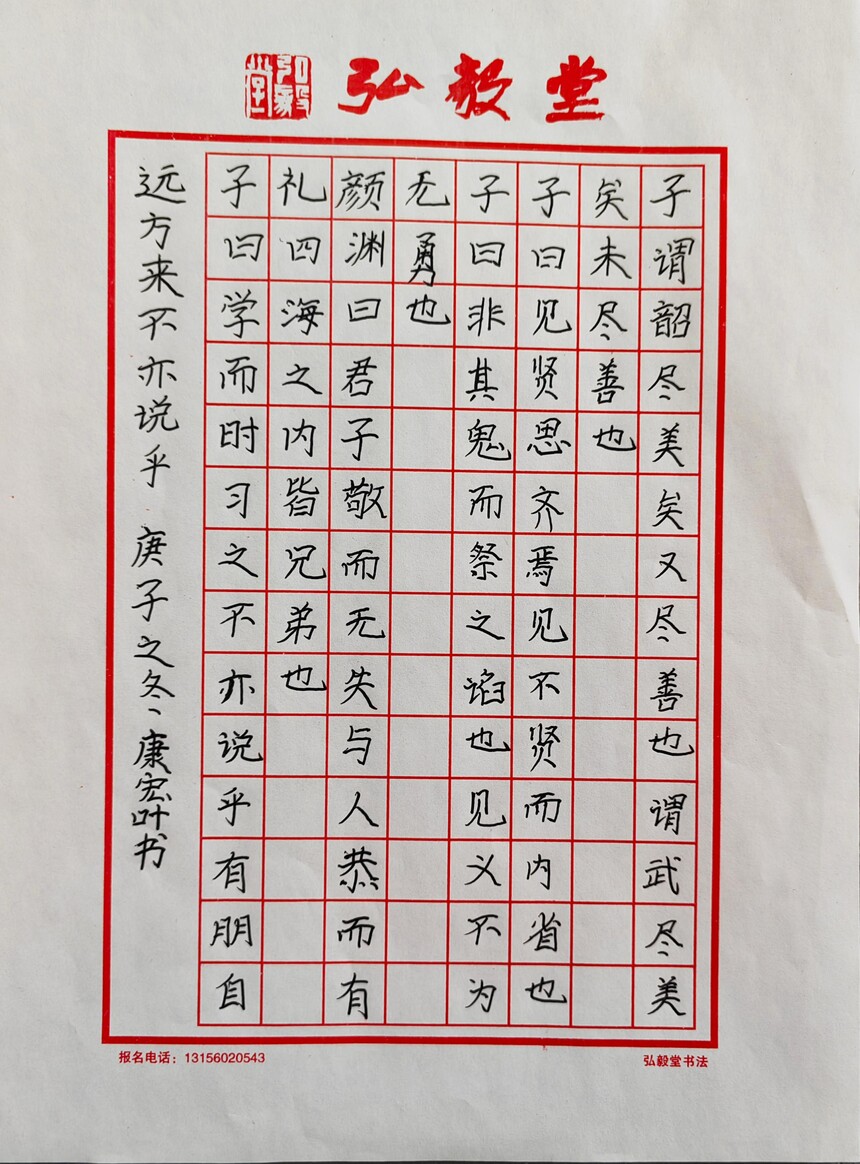 弘毅堂
弘毅堂
子谓韶尽美矣又尽善也谓武尽美
矣未尽善也
子曰见贤思齐焉见不贤而内省也
子曰非其鬼而祭之谄也见义不为
无勇也
颜渊曰君子敬而无失与人恭而有
礼四海之内皆兄弟也
子曰学而时习之不亦说乎有朋自
远方来不亦说乎 庚子之冬、康宏叶书
报名电话：13156020543
弘毅堂书法